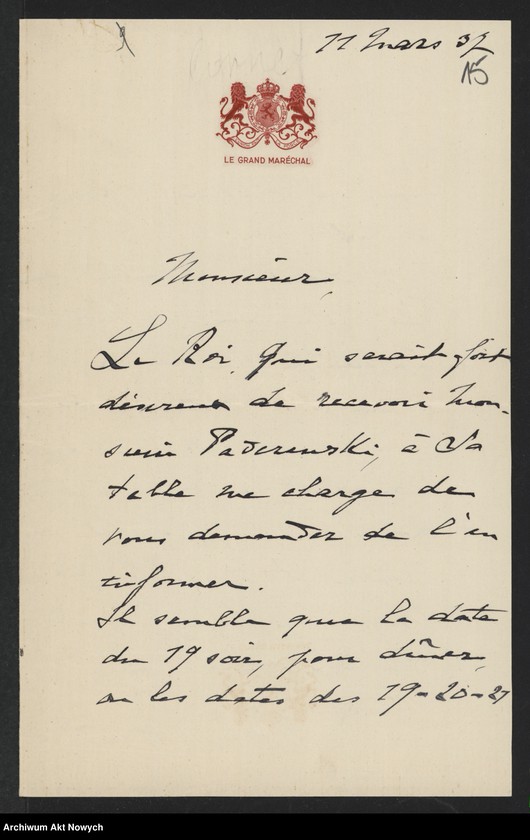 11 Mars 37
15
LE GRAND MARÉCHAL
Monsieur,
Le Roi, qui serait fort
désireux de recevoir Mon-
sieur Paderewski, à Sa
table me charge de
vous demander de l'en
informer.
Il semble que la date
du 19 soir, pour dîner,
ou les dates des 19-20-21
Archiwum Akt Nowych